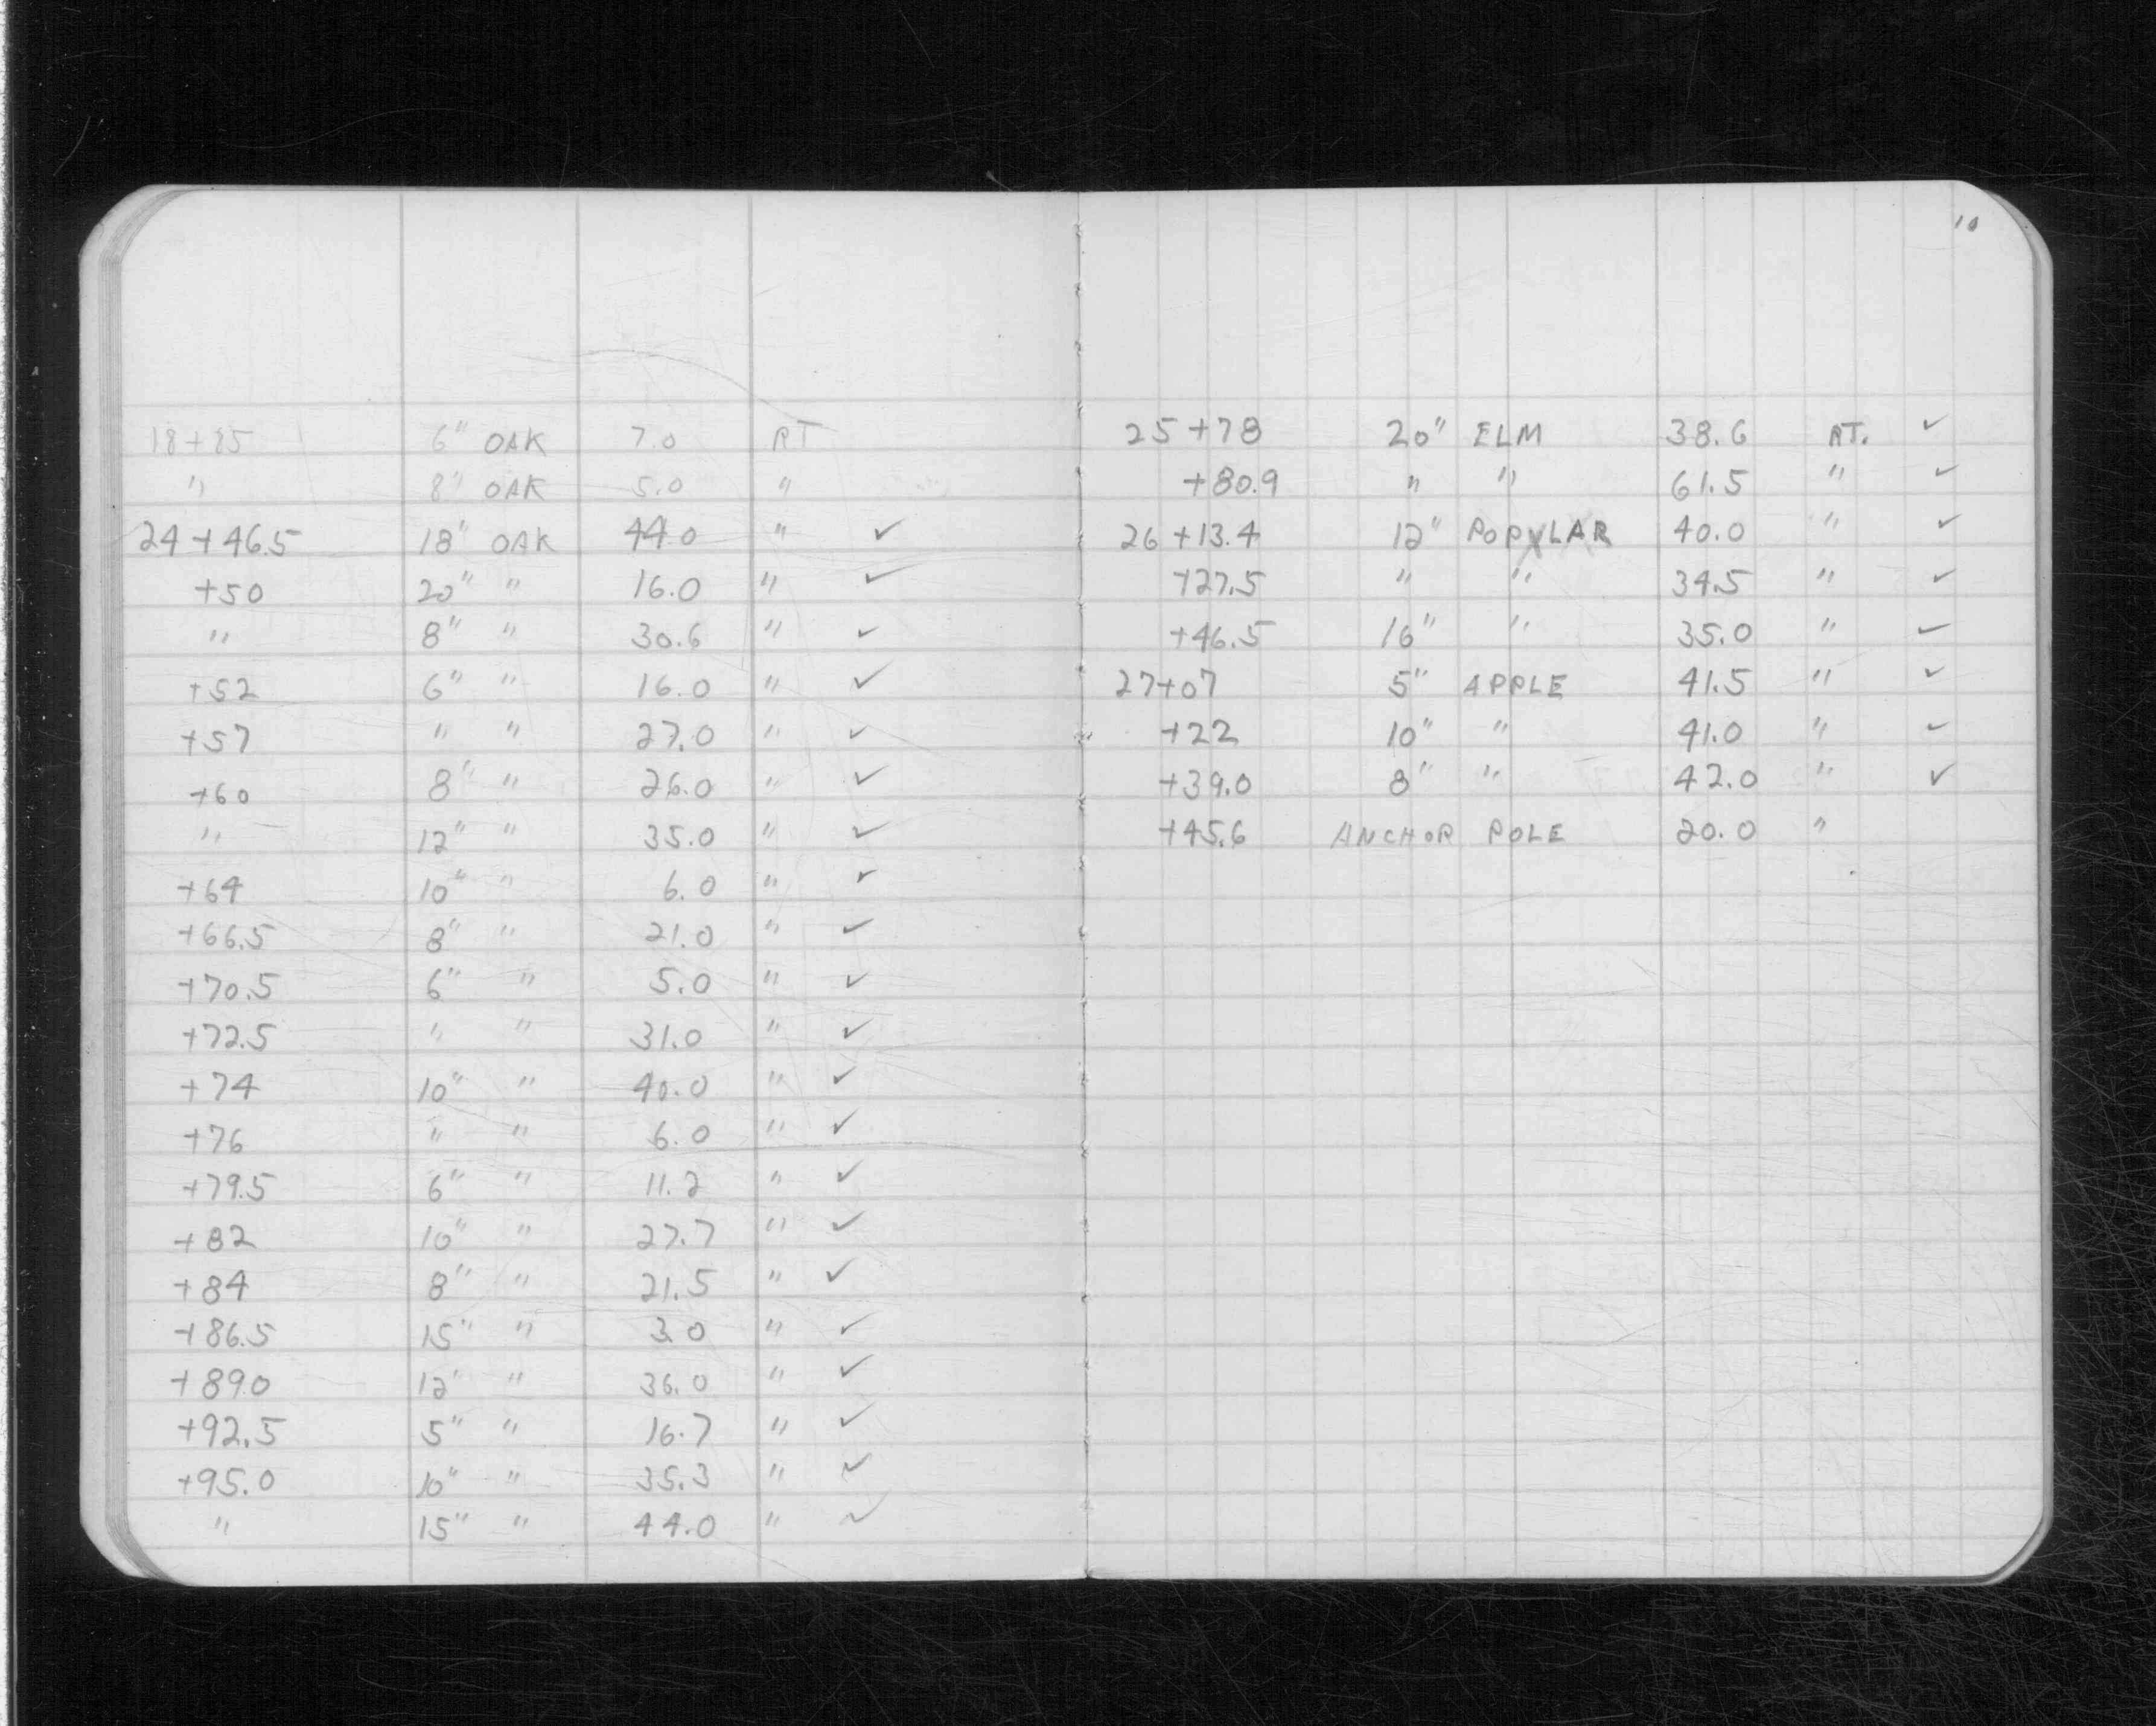 10
18+85 6" OAK 7.0 RT
" 8" OAK 5.0 "
24+46.5 18" OAK 44.0 " ✓
+50 20" " 16.0 " ✓
" 8" " 30.6 " ✓
+52 6" " 16.0 " ✓
+57 " " 27.0 " ✓
+60 8" " 26.0 " ✓
" 12" " 35.0 " ✓
+64 10" " 6.0 " ✓
+66.5 8" " 21.0 " ✓
+70.5 6" " 5.0 " ✓
+72.5 " " 31.0 " ✓
+74 10" " 40.0 " ✓
+76 " " 6.0 " ✓
+79.5 6" " 11.2 " ✓
+82 10" " 27.7 " ✓
+84 8" " 21.5 " ✓
+86.5 15" " 3.0 " ✓
+89.0 12" " 36.0 " ✓
+92.5 5" " 16.7 " ✓
+95.0 10" " 35.3 " ✓
" 15" " 44.0 " ✓
25+78 20" ELM 38.6 RT. ✓
+80.9 " " 61.5 " ✓
26+13.4 12" POPLAR 40.0 " ✓
+27.5 " " 34.5 " ✓
+46.5 16" " 35.0 " ✓
27+07 5" APPLE 41.5 " ✓
+22 10" " 41.0 " ✓
+39.0 8" " 42.0 " ✓
+45.6 ANCHOR POLE 20.0 "